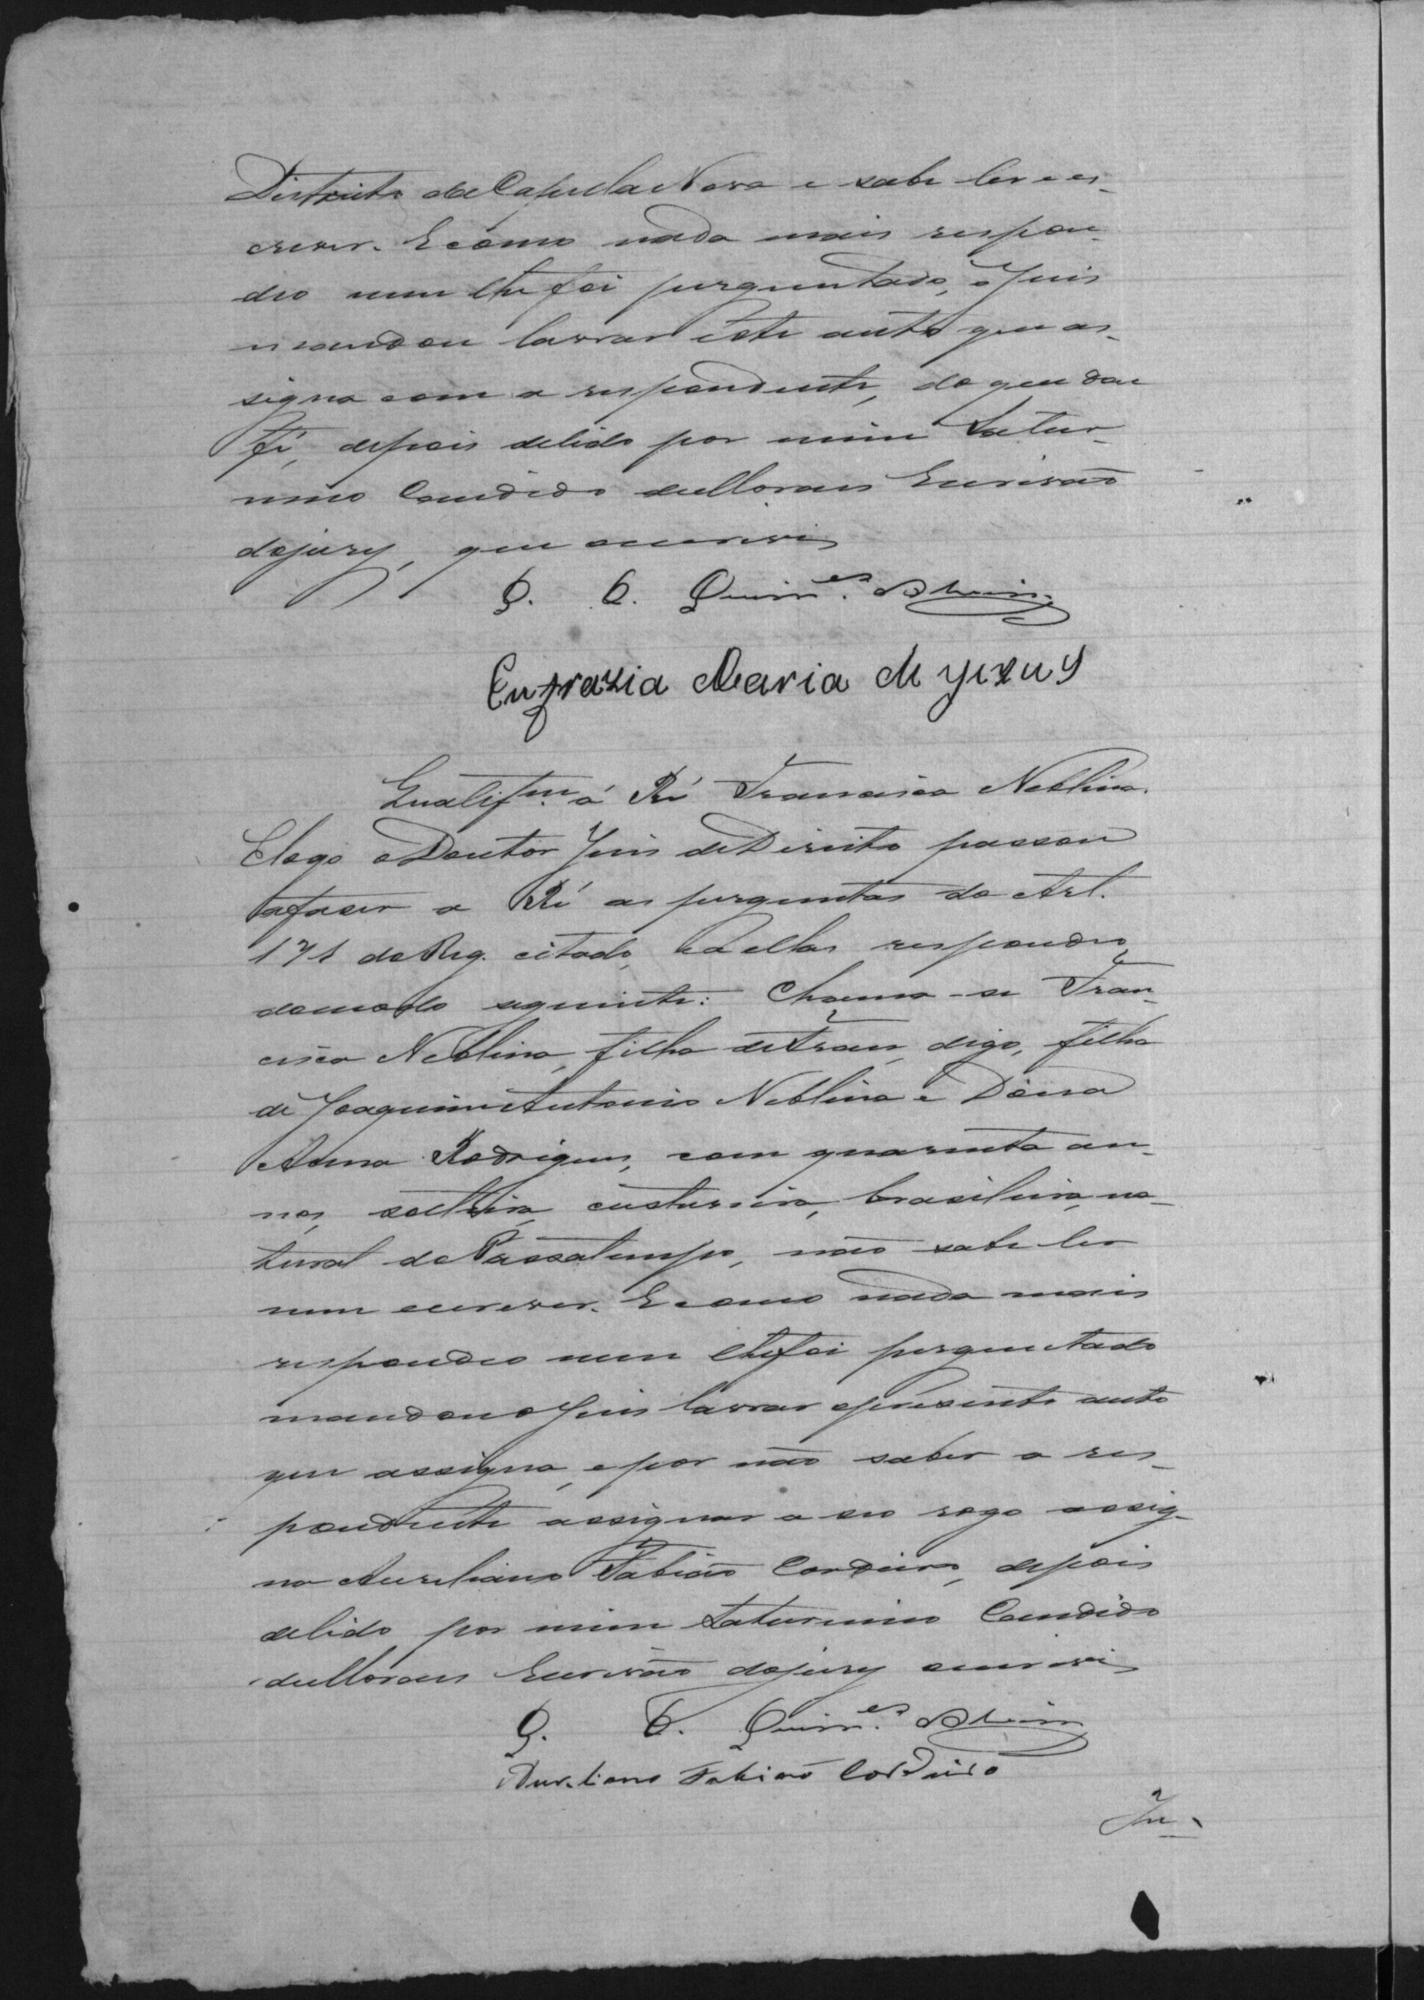 Districto da Capella Nova e sabe ler e es-
crever. E como nada mais respon-
deo nem lhe foi perguntado, o Juis
mandou lavrar este auto que as-
signa com a respondente, do que dou
fé, depois de lido por mim Satur-
nino Candido de Moraes Escrivão
do jury, que o escrevi
Eufrazia Maria de Jezus
Qualif.m á Ré Francisca Neblina.
E logo o Doutor Juis de Direito passou
a faser a Ré as perguntas do Art.
171 do Reg. citado, e a ellas respondeo
do modo seguinte: Chama-se Fran-
cisca Neblina, filha de Fran, digo, filha
de Joaquim Antonio Neblina e Dona
Anna Rodrigues, com quarenta an-
nos, solteira, custureira, brasileira, na-
tural do Passatempo, não sabe ler
nem escrever. E como nada mais
respondeo nem lhe foi perguntado
mandou o Juis lavrar o presente auto
que assigna, e por não saber a res-
pondente assignar a seo rogo assig-
na Aureliano Fabião Cordeiro, depois
de lido por mim Saturnino Candido
de Moraes Escrivão do jury escrevi
Aureliano Fabiao Cordeiro
Ju-